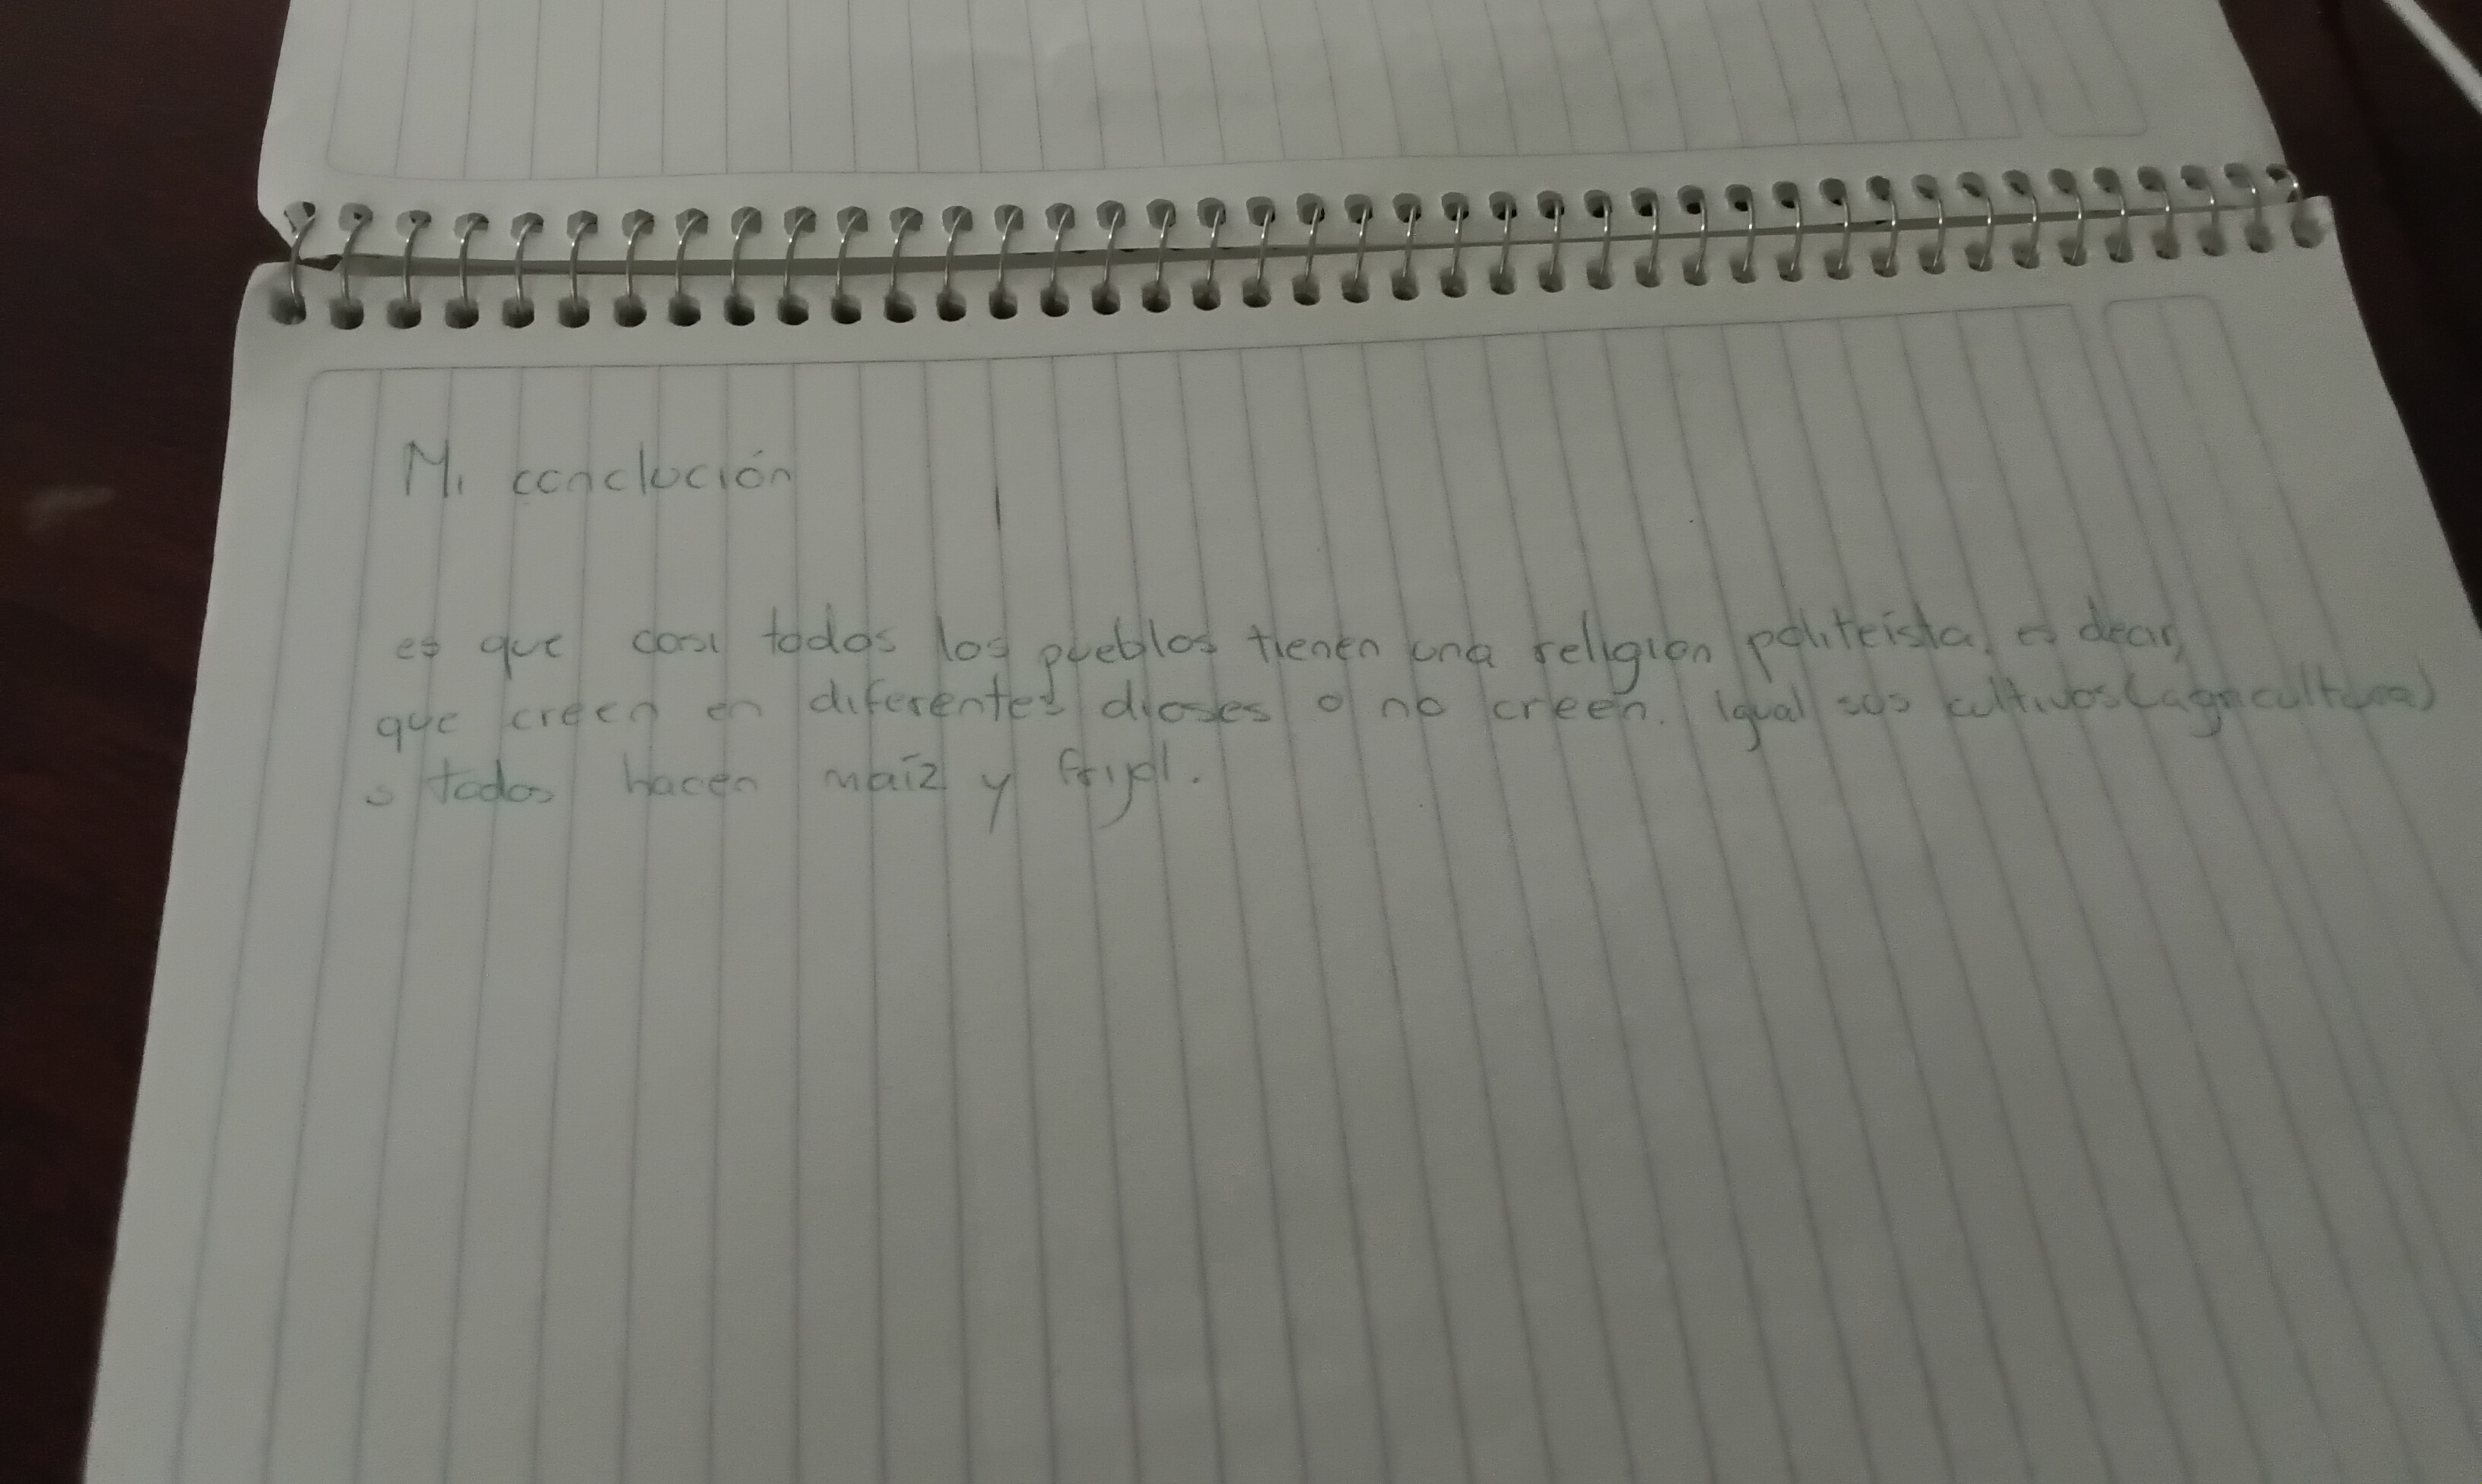 Mi conclución
es que casi todos los pueblos tienen una religion politeísta, es decir,
que creen en diferentes dioses o no creen. Igual sus cultivos (agricultura)
todos hacen maíz y frijol.